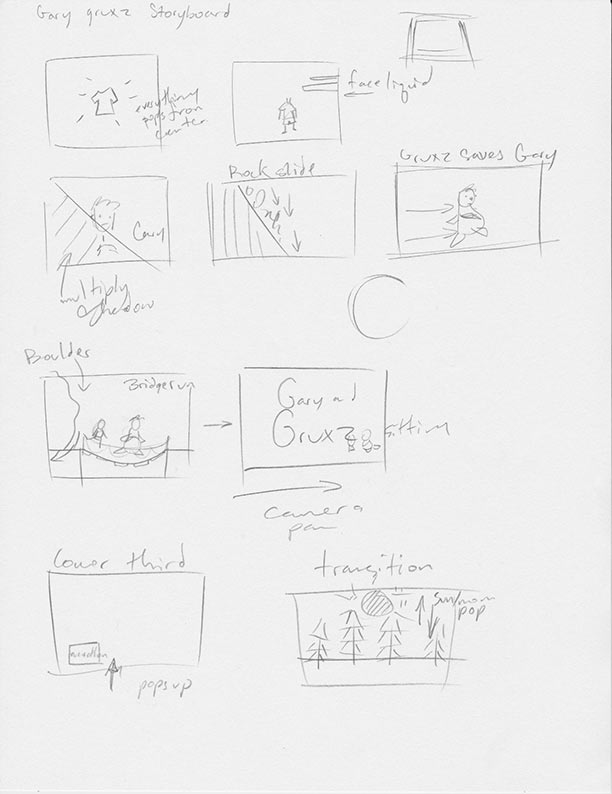 Gary gruxz Storyboard
everything
pops from
center
face liquid
Gary
multiply
shadow
Rock slide
Gruxz saves Gary
Boulder
Bridge run
Gary and
Gruxz
sitting
camera
pan
lower third
pops up
transition
sun/moon
pop